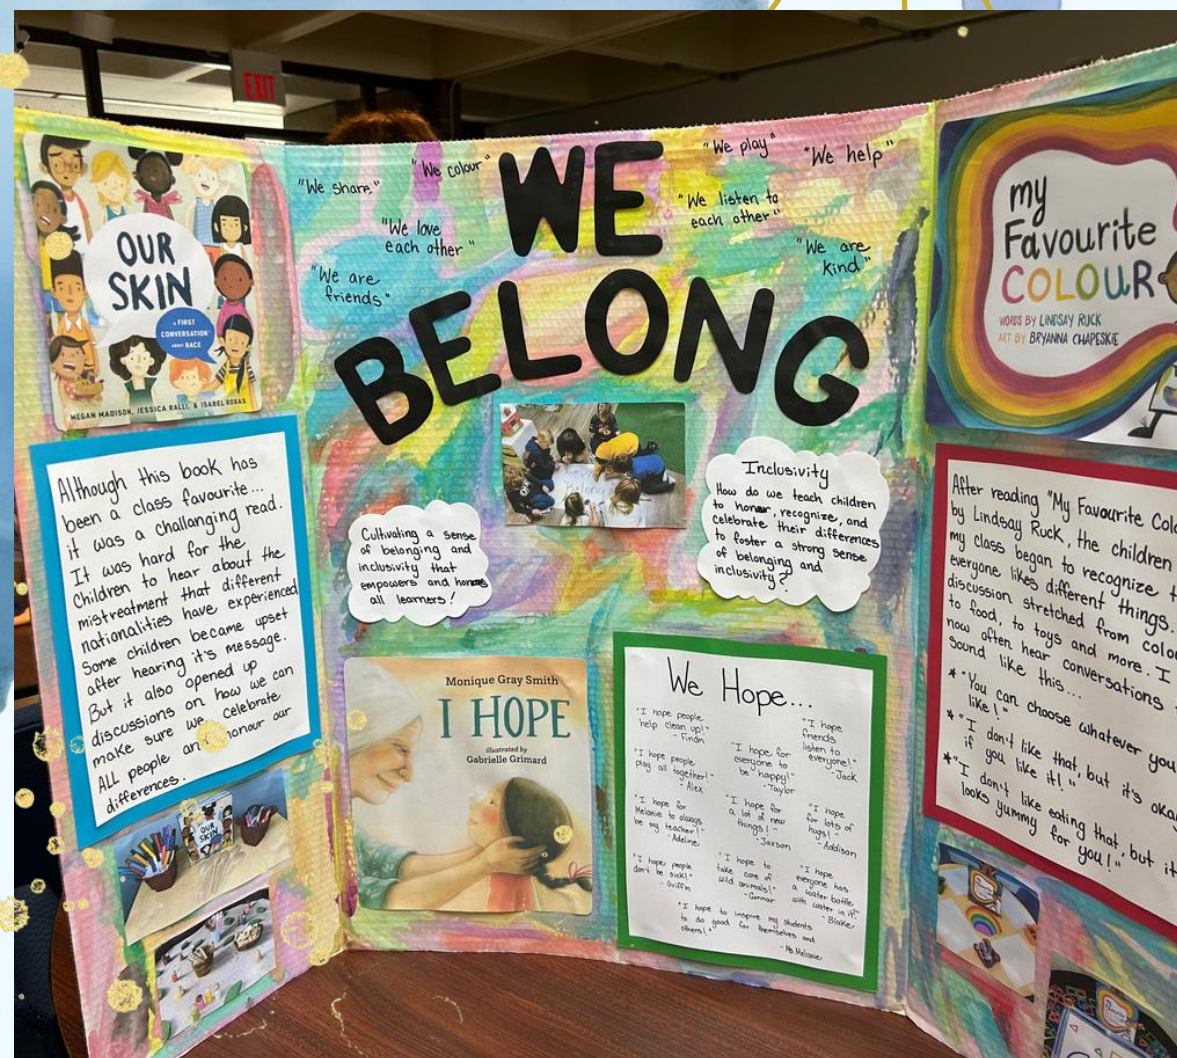 EXIT
OUR
SKIN
A FIRST
CONVERSATION
ABOUT RACE
MEGAN MADISON, JESSICA RALLI, & ISABEL ROXAS
Although this book has
been a class favourite...
it was a challanging read.
It was hard for the
Children to hear about the
mistreatment that different
nationalities have experienced
Some children became upset
after hearing it's message.
But it also opened up
discussions on how we can
make sure we celebrate
ALL people and honour our
differences.
OUR
SKIN
"We share."
"We colour"
"We love
each other"
"We are
friends"
WE
BELONG
"We play"
"We help"
"We listen to
each other"
"We are
kind"
Belong
Cultivating a sense
of belonging and
inclusivity that
empowers and honors
all learners!
Inclusivity
How do we teach children
to honor, recognize, and
celebrate their differences
to foster a strong sense
of belonging and
inclusivity?
Monique Gray Smith
I HOPE
illustrated by
Gabrielle Grimard
We Hope...
"I hope people
help clean up!"
- Finan
"I hope
friends
listen to
everyone!"
- Jack
"I hope people
play all together!"
- Alex
"I hope for
everyone to
be happy!"
- Taylor
"I hope for
Melanie to always
be my teacher!"
- Adeline
"I hope for
a lot of new
things!"
- Jaxson
"I hope
for lots of
hugs!"
- Addison
"I hope people
don't be sick!"
- Griffin
"I hope to
take care of
wild animals!"
- Connor
"I hope
everyone has
a water bottle
with water in it!"
- Blake
"I hope to inspire my students
to do good for themselves and
others!"
- Ms. Melanie
my
Favourite
COLOUR
WORDS BY LINDSAY RUCK
ART BY BRYANNA CHAPESKIE
After reading "My Favourite
by Lindsay Ruck, the children
my class began to recognize
everyone likes different things.
discussion stretched from
to food, to toys and more. I
now often hear conversations
sound like this...
* "You can choose whatever you
like!"
* "I don't like that, but it's okay
if you like it!"
* "I don't like eating that, but it
looks yummy for you!"